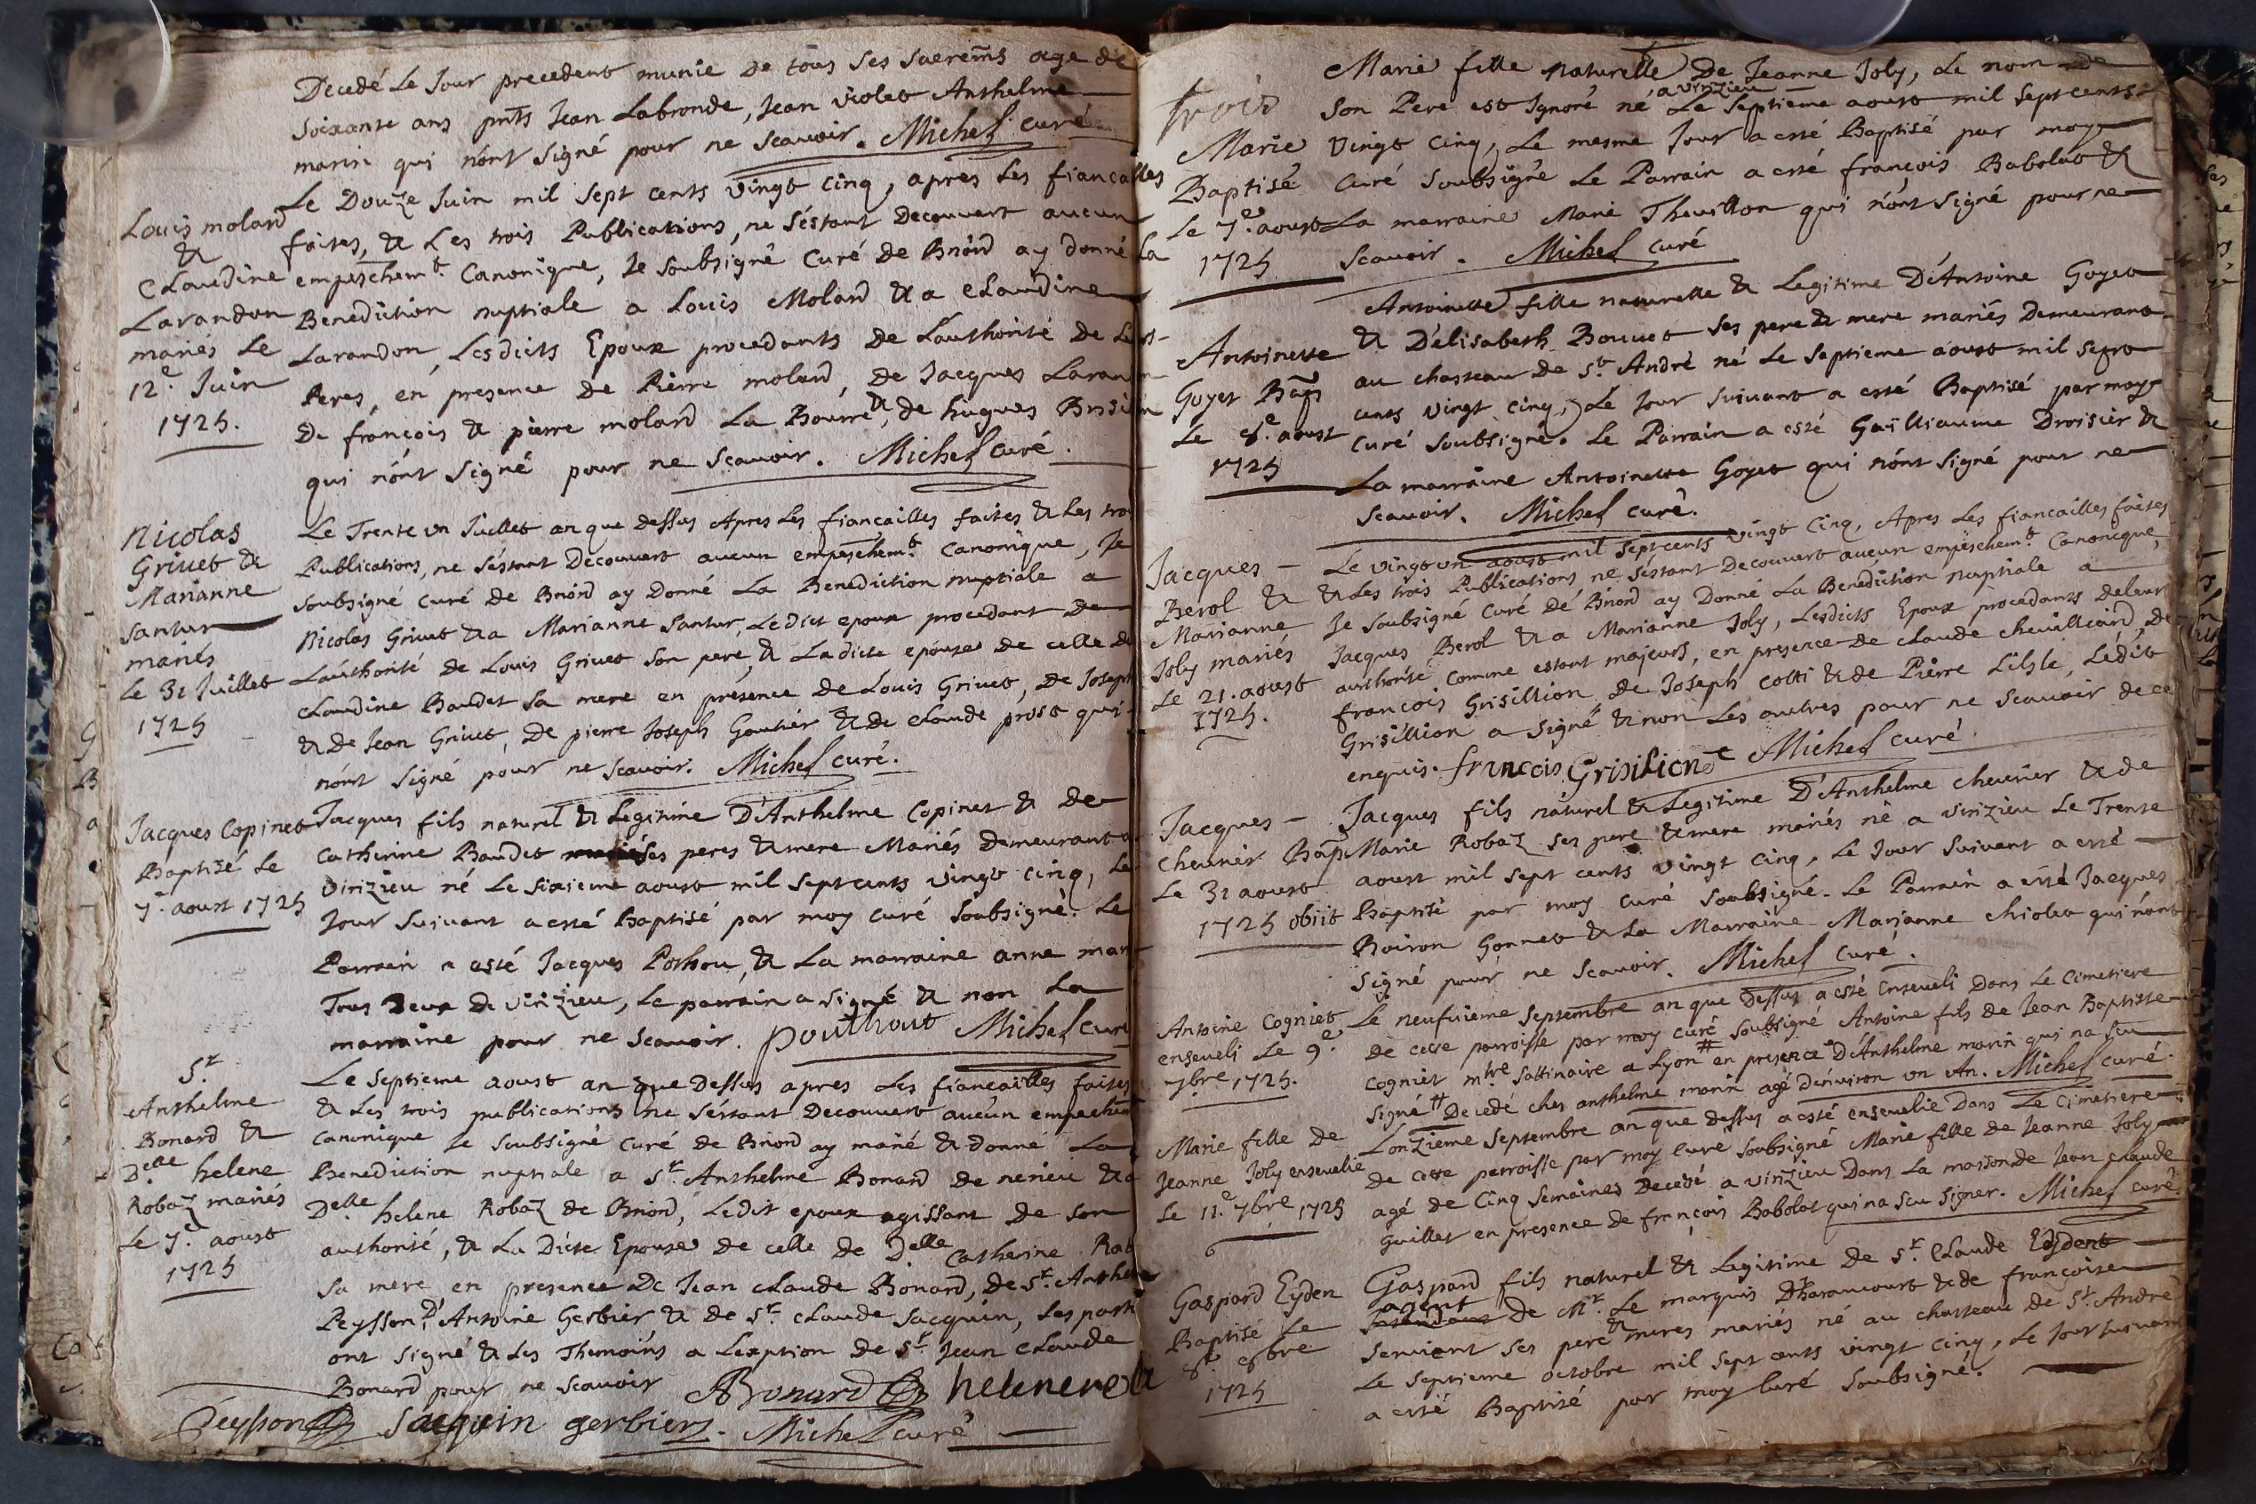 Decedé Le Jour precedent munie de tous ses sacrem̃s age de
soixante ans pñts Jean Labronde, Jean violet Anthelme
marin qui n'ont signé pour ne scauoir. Michel curé
Louis molard
&
Claudine
Larandon
mariés Le
12e. Juin
1725.
Le Douze Juin mil sept cents vingt cinq, apres les fiancailles
faites, & Les trois Publications, ne s'estant Decouvert aucun
empeschemt. Canonique, Je soubsigné Curé de Briord ay donné La
Benediction nuptiale a Louis Molard & a Claudine
Larandon, Lesdicts Epoux procedants de L'authorité de Leurs
Peres, en presence de Pierre molard, de Jacques Larandon
de françois & pierre molard La Bourre, & de hugues
qui n'ont signé pour ne scauoir. Michel curé.
Nicolas
Griuet &
Marianne
santur
mariés
Le 31 Juillet
1725
Le Trente un Juillet an que dessus Apres Les fiancailles faites & Les trois
Publications, ne s'estant Decouvert aucun empeschemt. Canonique, Je
soubsigné Curé de Briord ay Donné La Benediction nuptiale a
Nicolas Griuet & a Marianne Santur, Ledict epoux procedant de
L'authorité de Louis Griuet son pere, & Ladicte epouse de celle de
Claudine Baudet sa mere en presence de Louis Griuet, de Joseph
& de Jean Griuet, de pierre Joseph Goutier & de Claude prost qui
n'ont signé pour ne scauoir. Michel curé.
Jacques Copinet
Baptisé Le
7e. aoust 1725
Jacques fils naturel & Legitime D'Anthelme Copinet & de
Catherine Baudet ses peres & mere Mariés demeurant a
Virizieu né Le sixieme aoust mil sept cents vingt cinq, Le
Jour suivant a esté Baptisé par moy curé soubsigné. Le
Parrain a esté Jacques Pothou, & La marraine anne
Tous Deux de virizieu, Le parrain a signé & non La
marraine pour ne scauoir. pouthout Michel curé
Sr.
Anthelme
Bonard &
Delle helene
Robaz mariés
Le 7e. aoust
1725
Le Septieme aoust an que Dessus apres Les fiancailles faites
& Les trois publications ne s'estant Decouvert aucun empechemt
Canonique Je Soubsigné Curé de Briord ay marié & donné La
Benediction nuptiale a Sr. Anthelme Bonard de nerieu & a
Delle helene Robaz de Briord, Ledit epoux agissant de son
authorité, & La Dicte Epouse de celle de Delle Catherine
sa mere, en presence de Jean Claude Bonard, de Sr. Anthelme
Peysson, D'Antoine Gerbier & de Sr. Claude Sacquin, Les parties
ont signé & Les Themoins a L'exption de Sr. Jean Claude
Bonard pour ne scauoir ABonard helene
Peysson Sacquin gerbier. Michel curé
trois
Marie
Baptisé
Le 7e. aoust
1725
Marie fille naturelle de Jeanne Joly, Le nom de
son Pere est Ignoré né a virizieu Le septieme aoust mil sept cents
vingt cinq, Le mesme Jour a esté Baptisé par moy
Curé soubsigné Le Parrain a esté françois Babolat &
La marraine Marie Theuillon qui n'ont signé pour ne
scauoir. Michel curé
Antoinette
Goyet Bap̃
Le 8e. aoust
1725
Antoinette fille naturelle & Legitime D'Antoine Goyet
& D'élisabeth Bouuet ses pere & mere mariés Demeurant
au chasteau de St. André né Le septieme aoust mil sept
cents vingt cinq, Le Jour suivant a esté Baptisé par moy
Curé soubsigné. Le Parrain a esté Guilliaume Droisier &
La marraine Antoinette Goyet qui n'ont signé pour ne
scauoir. Michel curé.
Jacques
Berol &
Marianne
Joly mariés
Le 21. aoust
1725.
Le vingt un aoust mil sept cents vingt cinq, Apres Les fiancailles faites
& Les trois Publications ne s'estant Decouvert aucun empeschemt. Canonique,
Je soubsigné Curé de Briord ay Donné La Benediction nuptiale a
Jacques Berol & a Marianne Joly, Lesdicts Epoux procedants de leur
authorité comme estant majeurs, en presence de Claude Cheuilliard, de
françois Grisillion, de Joseph Cotti & de Pierre L'isle, Ledit
Grisillion a signé & non Les autres pour ne scauoir de ce
enquis. francois Grisilion Michel curé.
Jacques
Cheurier Bap̃
Le 31 aoust
1725 obiit
Jacques fils naturel & Legitime D'Anthelme Cheurier & de
Marie Robaz ses pere & mere mariés né a Virizieu Le Trente
aoust mil sept cents vingt cinq, Le Jour suivant a esté
Baptisé par moy Curé soubsigné. Le Parrain a esté Jacques
Boiron Gonnet & La Marraine Marianne qui n'ont
signé pour ne scauoir. Michel curé.
Antoine Cogniet
enseueli Le 9e.
7bre 1725.
Le neufuieme Septembre an que Dessus a esté Enseueli Dans Le Cimetiere
de cette parroisse par moy curé soubsigné Antoine fils de Jean Baptiste
Cogniet mtre. sattinaire a Lyon # en presence D'Anthelme marin qui na sceu
signé # Decedé ches anthelme marin agé D'environ un An. Michel curé.
Marie fille de
Jeanne Joly enseuelie
Le 11.e 7bre 1725
L'onzieme Septembre an que dessus a esté enseuelie Dans Le Cimetiere
de cette parroisse par moy Curé soubsigné Marie fille de Jeanne Joly
agé de Cinq semaines Decedé a virizieu Dans La maison de Jean Claude
Guillet en presence de françois Babolat qui na sceu signer. Michel curé.
Gaspard Eyden
Baptisé Le
8e. 8bre
1725
Gaspard fils naturel & Legitime de Sr. Claude Eydent
agent de Mr. Le marquis D'haraucourt & de françoise
Seruient ses pere & meres mariés né au chasteau de St. André
Le septieme octobre mil sept cents vingt cinq, Le Jour suivant
a esté Baptisé par moy Curé soubsigné.